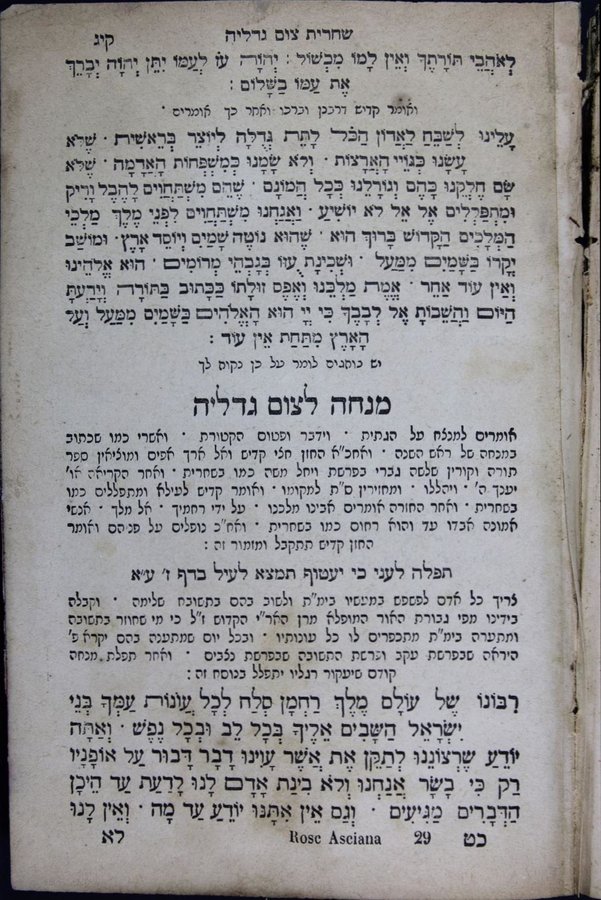 שחרית צום גדליה
קיג
לְאֹהֲבֵי תוֹרָתֶךָ וְאֵין לָמוֹ מִכְשׁוֹל : יְהֹוָה עֹז לְעַמּוֹ יִתֵּן יְהֹוָה יְבָרֵךְ
אֶת עַמּוֹ בַשָּׁלוֹם :
ואומר קדיש דרבנן וברכו ואחר כך אומרים ׃
עָלֵינוּ לְשַׁבֵּחַ לַאֲדוֹן הַכֹּל לָתֵת גְּדֻלָּה לְיוֹצֵר בְּרֵאשִׁית ׃ שֶׁלֹּא
עָשָׂנוּ כְּגוֹיֵי הָאֲרָצוֹת ׃ וְלֹא שָׂמָנוּ כְּמִשְׁפְּחוֹת הָאֲדָמָה ׃ שֶׁלֹּא
שָׂם חֶלְקֵנוּ כָּהֶם וְגוֹרָלֵנוּ כְּכָל הֲמוֹנָם ׃ שֶׁהֵם מִשְׁתַּחֲוִים לָהֶבֶל וָרִיק
וּמִתְפַּלְלִים אֶל אֵל לֹא יוֹשִׁיעַ ׃ וַאֲנַחְנוּ מִשְׁתַּחֲוִים לִפְנֵי מֶלֶךְ מַלְכֵי
הַמְּלָכִים הַקָּדוֹשׁ בָּרוּךְ הוּא ׃ שֶׁהוּא נוֹטֶה שָׁמַיִם וְיוֹסֵד אָרֶץ ׃ וּמוֹשַׁב
יְקָרוֹ בַּשָּׁמַיִם מִמַּעַל ׃ וּשְׁכִינַת עֻזּוֹ בְּגָבְהֵי מְרוֹמִים ׃ הוּא אֱלֹהֵינוּ
וְאֵין עוֹד אַחֵר ׃ אֱמֶת מַלְכֵּנוּ וְאֶפֶס זוּלָתוֹ כַּכָּתוּב בַּתּוֹרָה וְיָדַעְתָּ
הַיּוֹם וַהֲשֵׁבוֹתָ אֶל לְבָבֶךָ כִּי יְיָ הוּא הָאֱלֹהִים בַּשָּׁמַיִם מִמַּעַל וְעַל
הָאָרֶץ מִתַּחַת אֵין עוֹד :
יש נוהגים לומר על כן נקוה לך
מנחה לצום גדליה
אומרים למנצח על הגתית ׃ וידבר ופטום הקטורת ׃ ואשרי כמו שכתוב
במנחה של ראש השנה ׃ ואחכ״א החזן חצי קדיש ואל ארך אפים ומוציאין ספר
תורה וקורין שלשה גברי בפרשת ויחל משה כמו בשחרית ׃ ואחר הקריאה או׳
יענך ה׳ ׃ ויהללו ׃ ומחזירין ס״ת למקומו ׃ ואומר קדיש לעילא ומתפללים כמו
בשחרית ׃ ואחר החזרה אומרים אבינו מלכנו ׃ על ידי רחמיך ׃ אל מלך ׃ אנשי
אמונה אבדו עד והוא רחום כמו בשחרית ׃ ואח״כ נופלים על פניהם ואומר
החזן קדיש תתקבל ומזמור זה :
תפלה לעני כי יעטוף תמצא לעיל בדף ז׳ ע״א
צריך כל אדם לפשפש במעשיו בימ״ת ולשוב בהם בתשובה שלימה ׃ וקבלה
בידינו מפי גבורת האור המופלא מרן האר״י הקדוש ז״ל כי מי שחוזר בתשובה
ומתעורה בימ״ת מתכפרים לו כל עונותיו ׃ ובכל יום שמתענה בהם יקרא פ׳
היראה שבפרשת עקב ופרשת התשובה שבפרשת נצבים ׃ ואחר תפלת מנחה
קודם שיעקור רגליו יתפלל בנוסח זה :
רִבּוֹנוֹ שֶׁל עוֹלָם מֶלֶךְ רַחְמָן סְלַח לְכָל עֲוֹנוֹת עַמְּךָ בְּנֵי
יִשְׂרָאֵל הַשָּׁבִים אֵלֶיךָ בְּכָל לֵב וּבְכָל נֶפֶשׁ ׃ וְאַתָּה
יוֹדֵעַ שֶׁרְצוֹנֵנוּ לְתַקֵּן אֶת אֲשֶׁר עָוִינוּ דָּבָר דָּבוּר עַל אוֹפָנָיו
רַק כִּי בָשָׂר אֲנַחְנוּ וְלֹא בִינַת אָדָם לָנוּ לָדַעַת עַד הֵיכָן
הַדְּבָרִים מַגִּיעִים ׃ וְגַם אֵין אִתָּנוּ יוֹדֵעַ עַד מָה ׃ וְאֵין לָנוּ
כט 29 Rosc Asciana לא